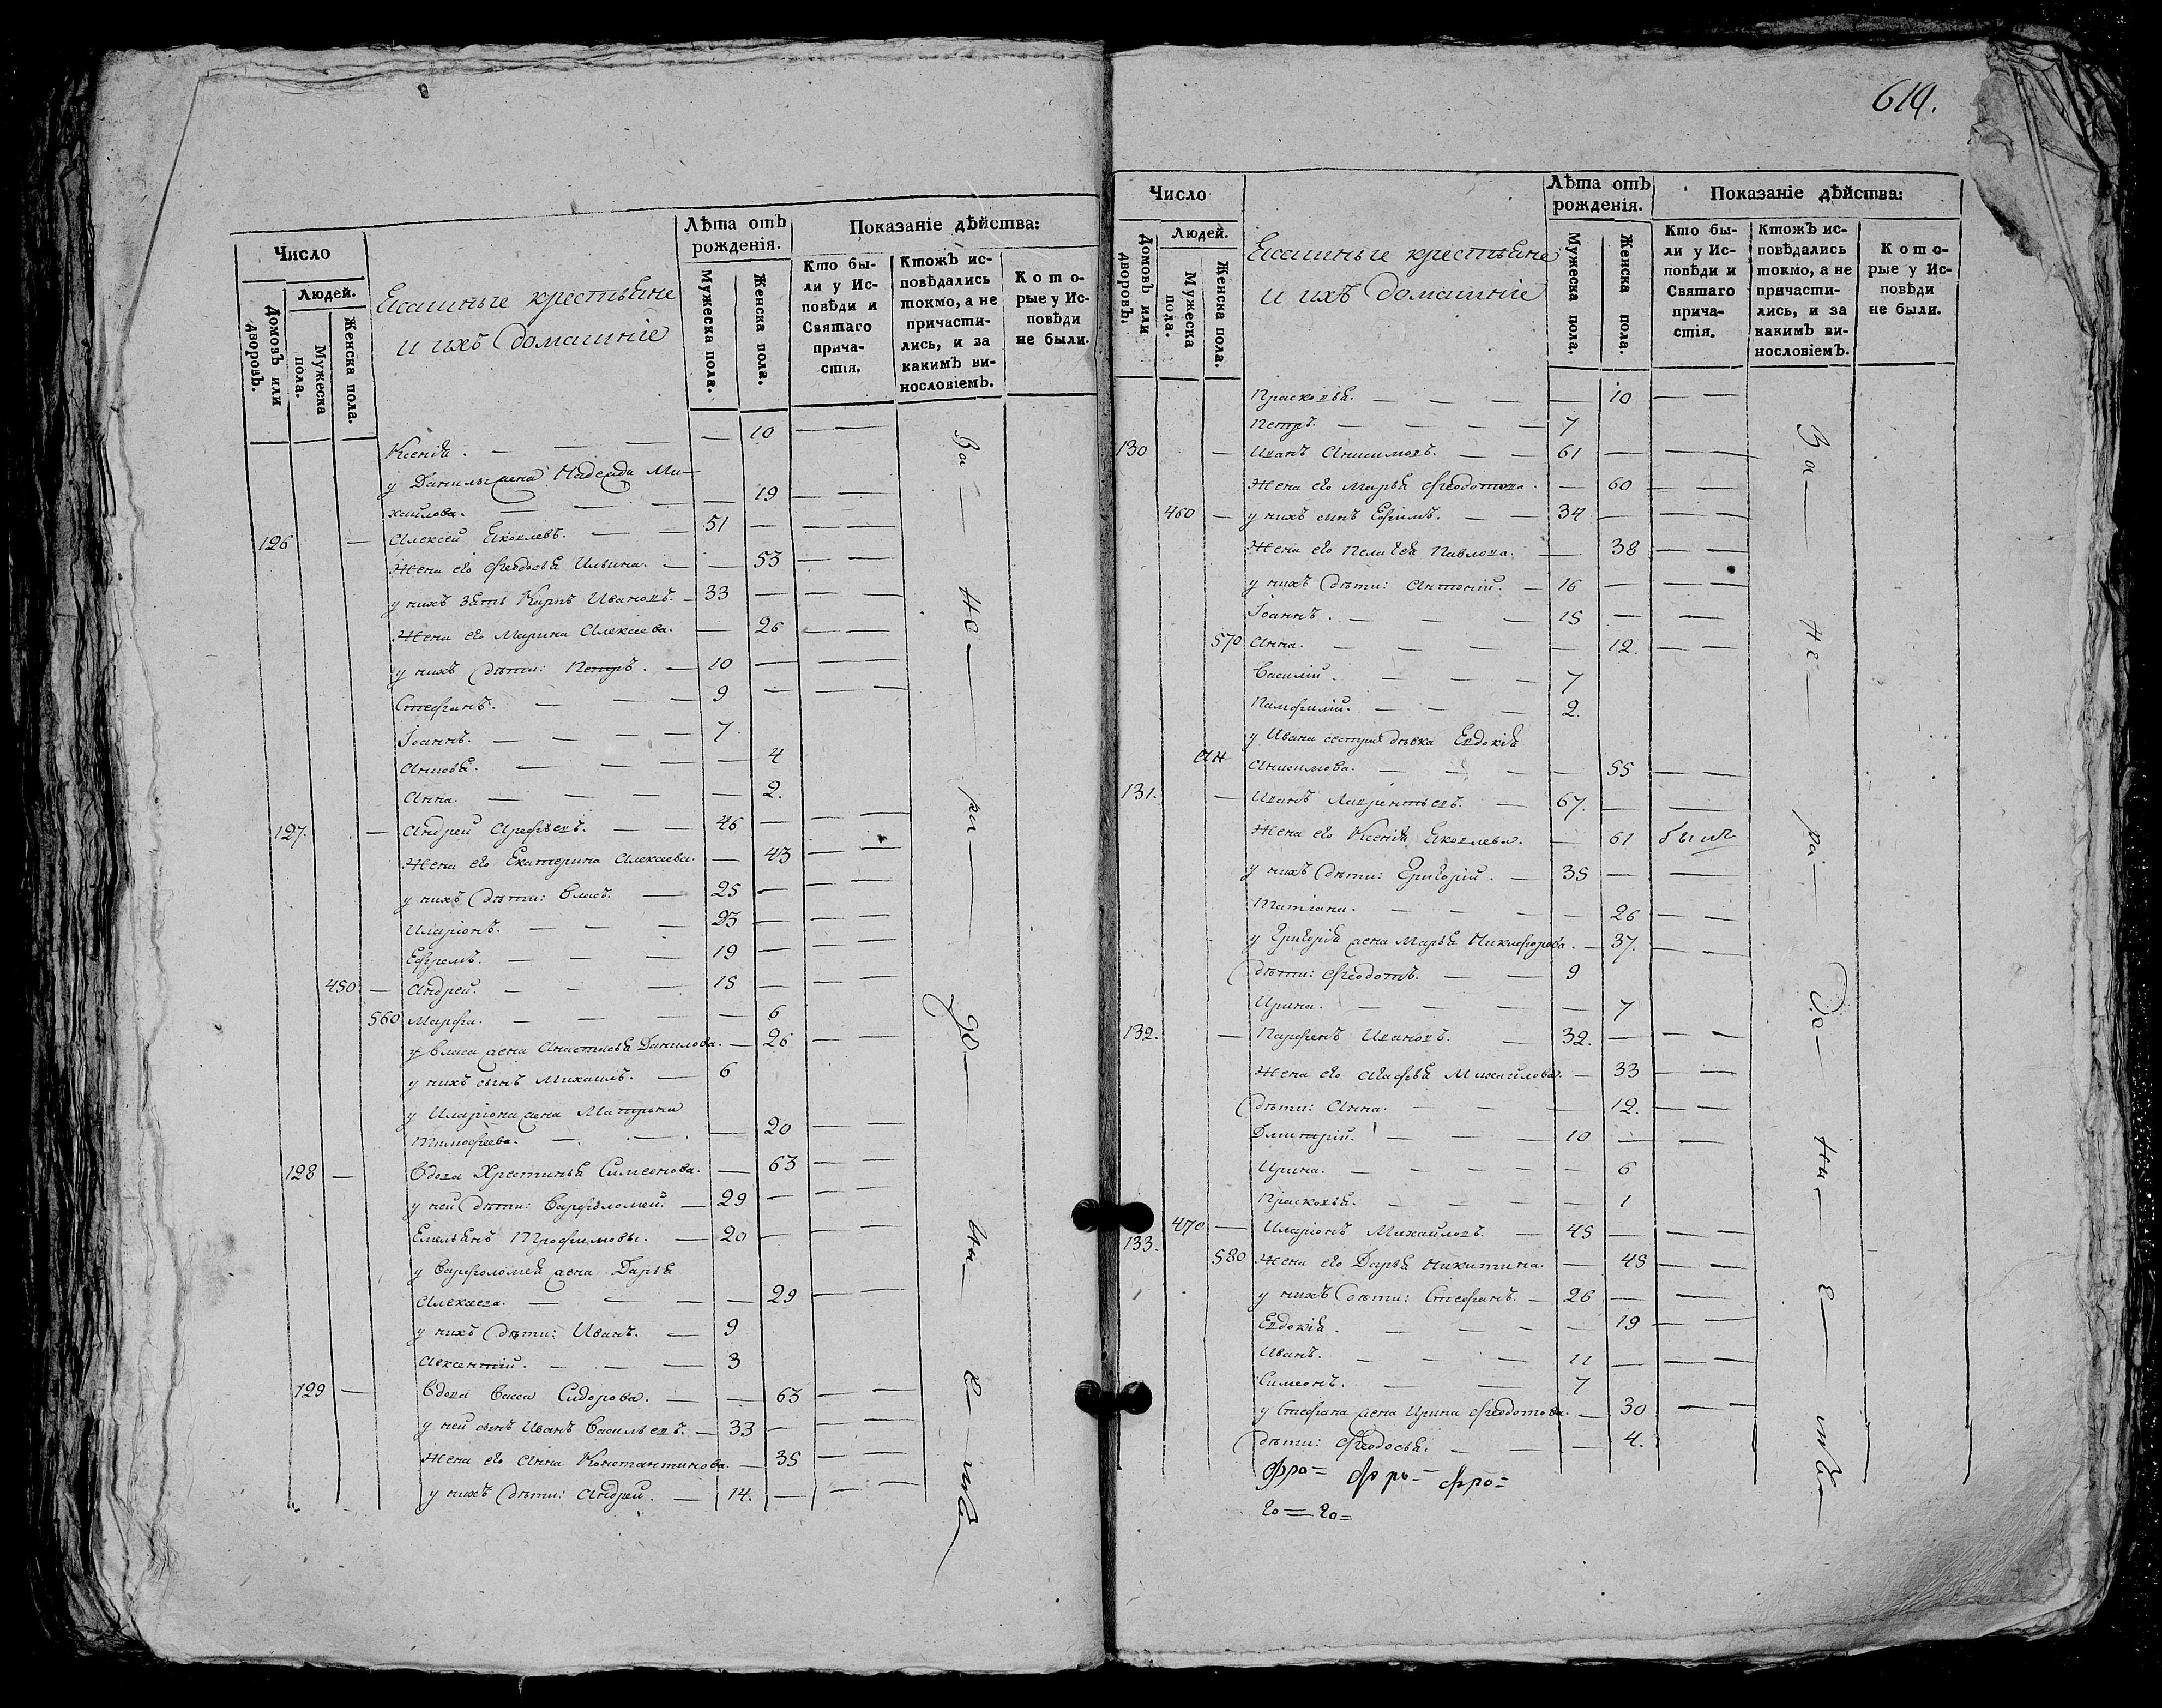 Число
Людей.
Домовъ или дворовъ.
Мужеска пола.
Женска пола.
Ясашные крестьяне
и ихъ домашніе
Лѣта отъ рожденія.
Мужеска пола.
Женска пола.
Показаніе дѣйства:
Кто были у Исповѣди и Святаго причастія.
Ктожъ исповѣдались токмо, а не причастились, и за какимъ винословіемъ.
Которые у Исповѣди не были.
Ксенія. — — — — 10 — —
у Данилы жена Надежда Ми-
хайлова. — — — — 19 — —
126 — Алексей Яковлевъ. — — 51 — — —
Жена его Ѳеодосья Ильина. — — 53 — —
у нихъ зять Карпъ Ивановъ. — 33 — — —
Жена его Марина Алексеева. — 26 — —
у нихъ дѣти: Петръ. — 10 — — —
Стефанъ. — — — 9 — — —
Іоаннъ. — — — — 7.
— — — — 4
Анна. — — — — 2.
127. — Андрей Арефьевъ. — — 46 — — —
Жена его Екатерина Алексеева. — 43 — —
у нихъ дѣти: Власъ. — 25 — — —
Иларіонъ. — — — 23 — — —
Ефремъ. — — — 19 — — —
450. — Андрей. — — — 15 — — —
560 Марфа. — — — — — 6
у Власа жена Анастасья Данилова. — 26 — —
у нихъ сынъ Михаилъ. — 6
у Иларіона жена Матрена
Тимофеева. — — — 20 — —
128 — Вдова Христинья Симеонова. — 63 — —
у ней дѣти: Варфоломей. — 29 — — —
Емельянъ Трофимовы. — 20 — — —
у Варфоломея жена Дарья
Алексеева. — — — — 29 — —
у нихъ дѣти: Иванъ. — 9
Авксентій. — — — 3
129 — Вдова Васса Сидорова. — — 63 — —
у ней сынъ Иванъ Васильевъ. — 33 — — —
Жена его Анна Константинова. — 35 — —
у нихъ дѣти: Андрей. — 14. — — —
За — не — ра — де — ни — е — мъ
614.
Число
Людей.
Домовъ или дворовъ.
Мужеска пола.
Женска пола.
Ясашные крестьяне
и ихъ домашніе
Лѣта отъ рожденія.
Мужеска пола.
Женска пола.
Показаніе дѣйства:
Кто были у Исповѣди и Святаго причастія.
Ктожъ исповѣдались токмо, а не причастились, и за какимъ винословіемъ.
Которые у Исповѣди не были.
Прасковья. — — — — 10 — —
Петръ. — — — — 7
130 — Иванъ Анисимовъ. — — 61 — — —
Жена его Марья Ѳеодотова. — 60 — —
460 — у нихъ сынъ Ефимъ. — — 34 — — —
Жена его Пелагея Павлова. — 38 — —
у нихъ дѣти: Антоній. — 16 — — —
Іоаннъ. — — — 15 — — —
570 Анна. — — — — 12. — —
Василій. — — — — 7
Памфилій. — — — 2.
у Ивана сестра дѣвка Евдокія
Анисимова. — — — — 55 — —
131. — Иванъ Лаврентьевъ. — 67. — —
Жена его Ксенія Яковлева. — 61 были
у нихъ дѣти: Григорій. — 35 — —
Татіана. — — — — 26 — —
у Григорія жена Марья Никифорова. — 37. — —
дѣти: Ѳеодотъ. — — 9
Ирина. — — — — — 7
132. — Парфенъ Ивановъ. — 32. — — —
Жена его Агафья Михайлова. — 33 — —
дѣти: Анна. — — — 12. — —
Дмитрій. — — — 10 — —
Ирина. — — — — — 6
Прасковья. — — — — 1
133. 470 — Иларіонъ Михайловъ. — 45 — — —
580 Жена его Дарья Никитина. — 45 — —
у нихъ дѣти: Стефанъ. — 26 — —
Евдокія. — — — — 19 — —
Иванъ. — — — 11 — — —
Симеонъ. — — 7
у Стефана жена Ирина Ѳеодотова. — 30 — —
дѣти: Ѳеодосья. — — — 4.
За — не — ра — де — ни — е — мъ